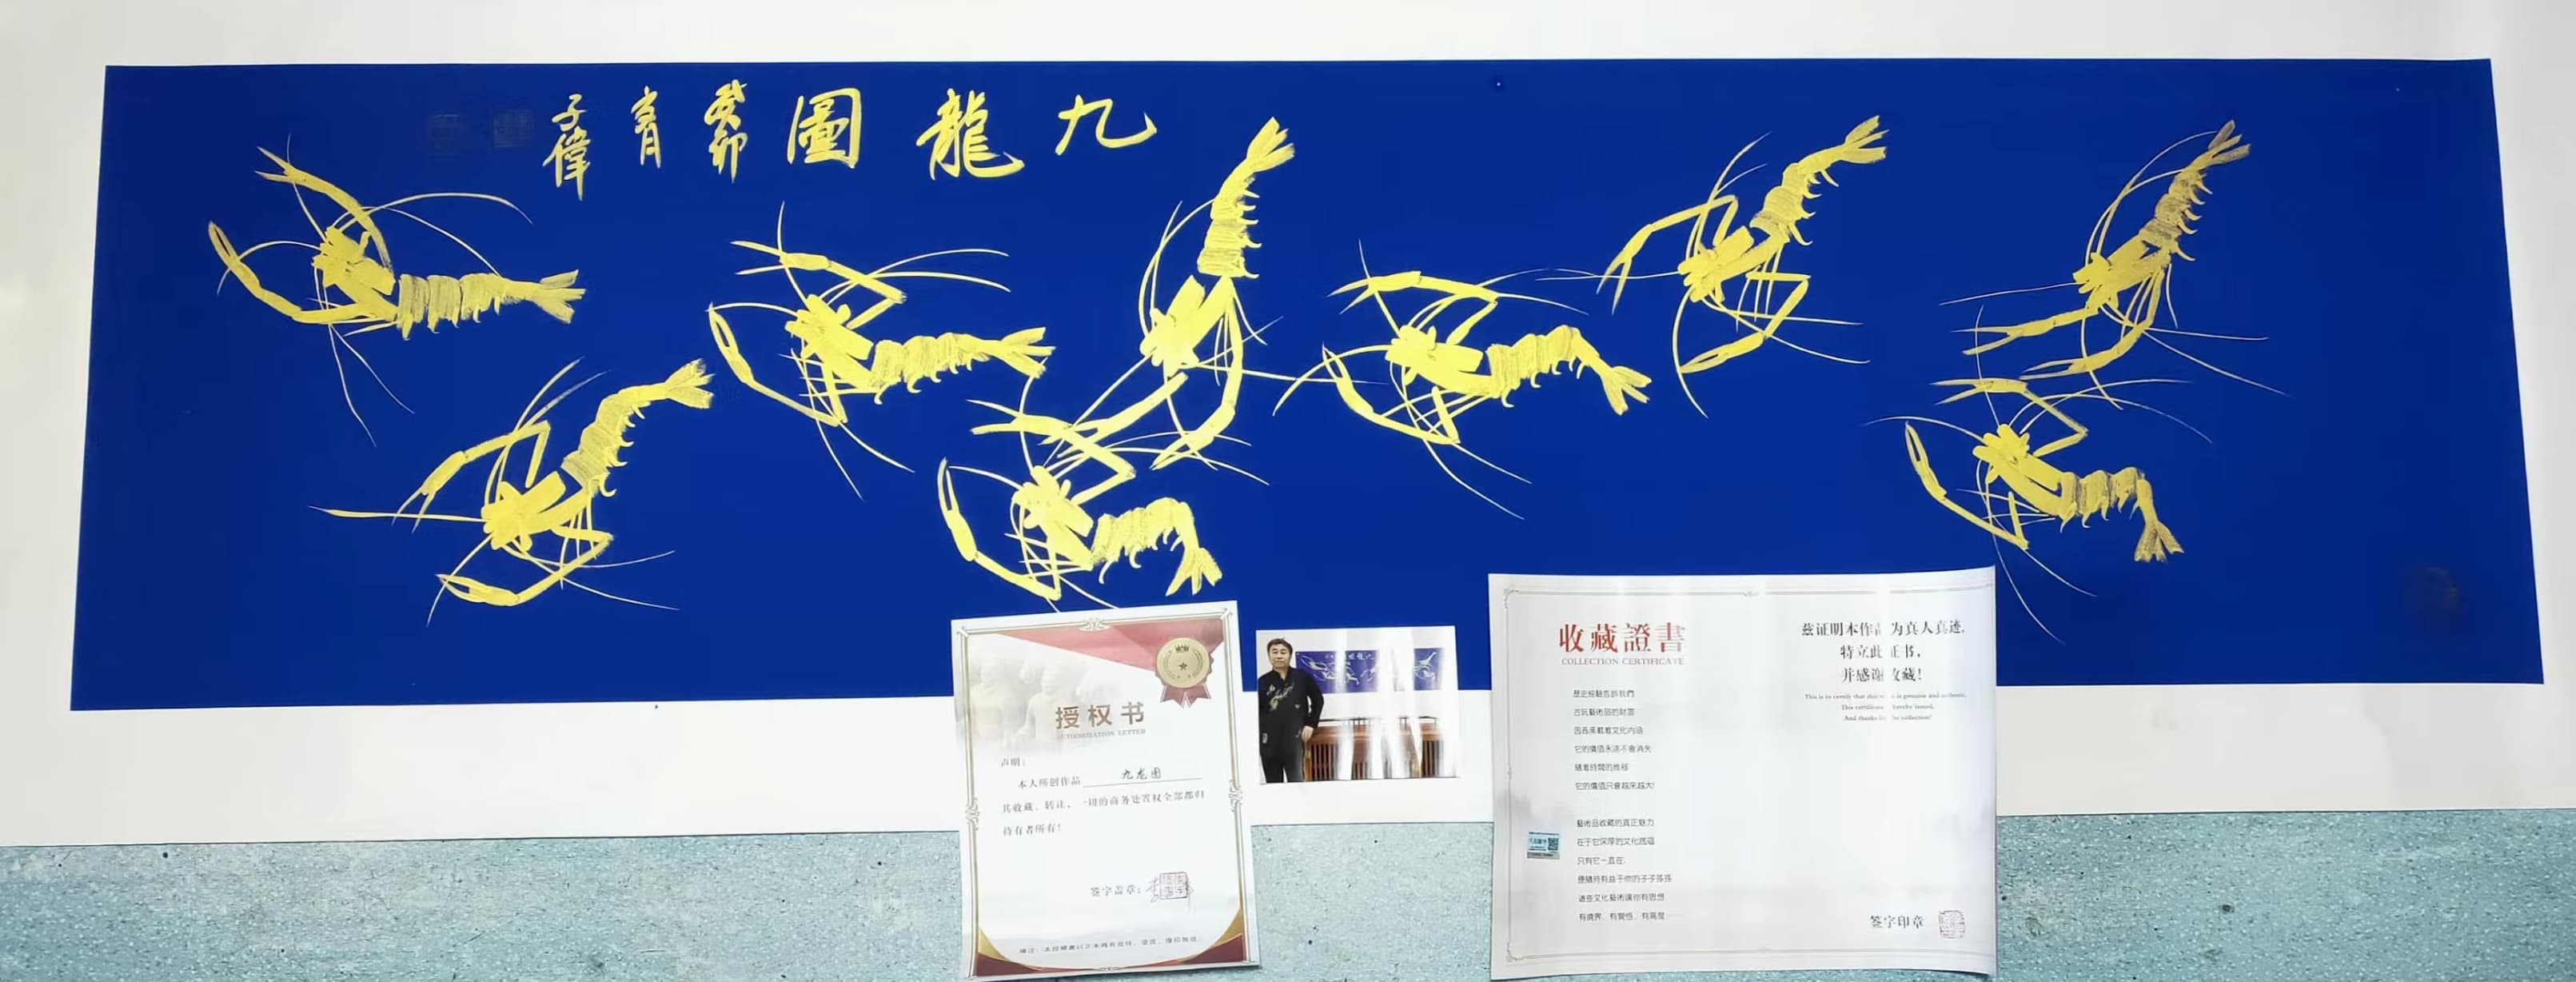 九龍圖
癸卯
子偉
授权书
AUTHORIZATION LETTER
声明：
本人所创作品 九龙图
其收藏、转让，一切的商务处置权全部都归
持有者所有！
签字盖章：
收藏證書
COLLECTION CERTIFICATE
歷史經驗告訴我們
古玩藝術品的財富
因爲承載着文化内涵
它的價值永遠不會消失
隨着時間的推移
它的價值只會越來越大!
藝術品收藏的真正魅力
在于它深厚的文化底蕴
只有它一直在,
這些文化藝術讓你有思想
有境界、有覺悟、有高度
兹证明本作品为真人真迹,
特立此证书,
并感谢收藏!
This is to certify that this is genuine and authentic,
This certificate hereby issued,
And thanks for the collection!
签字印章